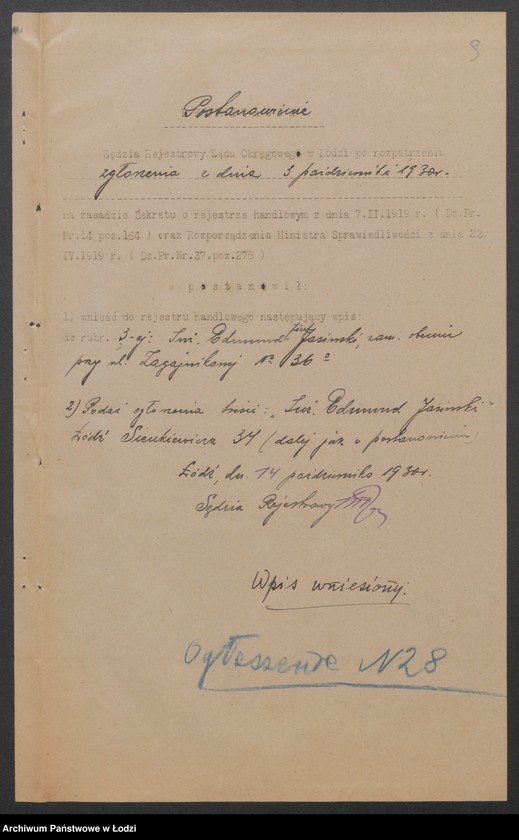 9
Postanowienie
Sędzia Rejestrowy Sądu Okręgowego w Łodzi po rozpatrzeniu
zgłoszenia z dnia 3 października 1930r.
na zasadzie Dekretu o rejestrze handlowym z dnia 7.II.1919 r. ( Dz.Pr.
Nr.14 poz.164 ) oraz Rozporządzenia Ministra Sprawiedliwości z dnia 22
IV.1919 r. ( Dz.Pr.Nr.37.poz.278 )
p o s t a n o w i ł:
1) wnieść do rejestru handlowego następujący wpis:
do rubr. 3-ej: Inż. Edmund Jasiński, zam. obecnie
przy ul. Zagajnikowej № 36
2) Podać ogłoszenia treści: „Inż. Edmund Jasiński"
Łódź Sienkiewicza 34 (dalej jak w postanowieniu
Łódź, dn. 14 października 1930r.
Sędzia Rejestrowy
Wpis wniesiony.
Ogłoszenie N28
Archiwum Państwowe w Łodzi